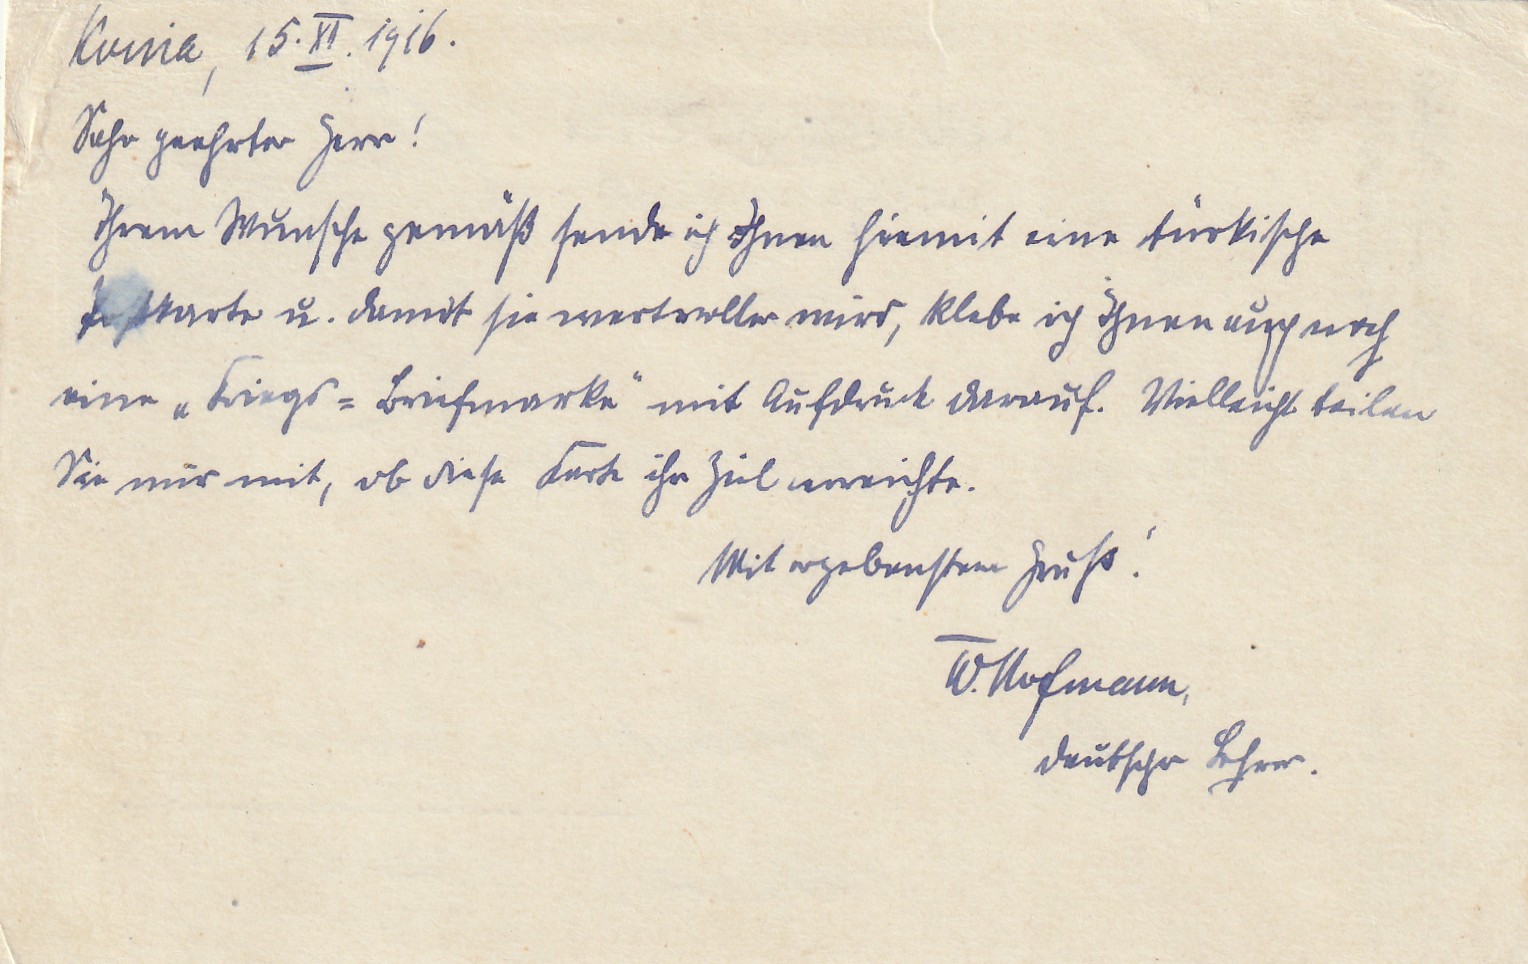 Konia, 15. XI. 1916.
Sehr geehrter Herr!
Ihrem Wunsche gemäß sende ich Ihnen hiemit eine türkische
Postkarte u. damit sie wertvoller wird, klebe ich Ihnen auch noch
eine „Kriegs=Briefmarke" mit Aufdruck darauf. Vielleicht teilen
Sie mir mit, ob diese Karte ihr Ziel erreichte.
Mit ergebenstem Gruß!
W. Hofmann,
deutscher Lehrer.